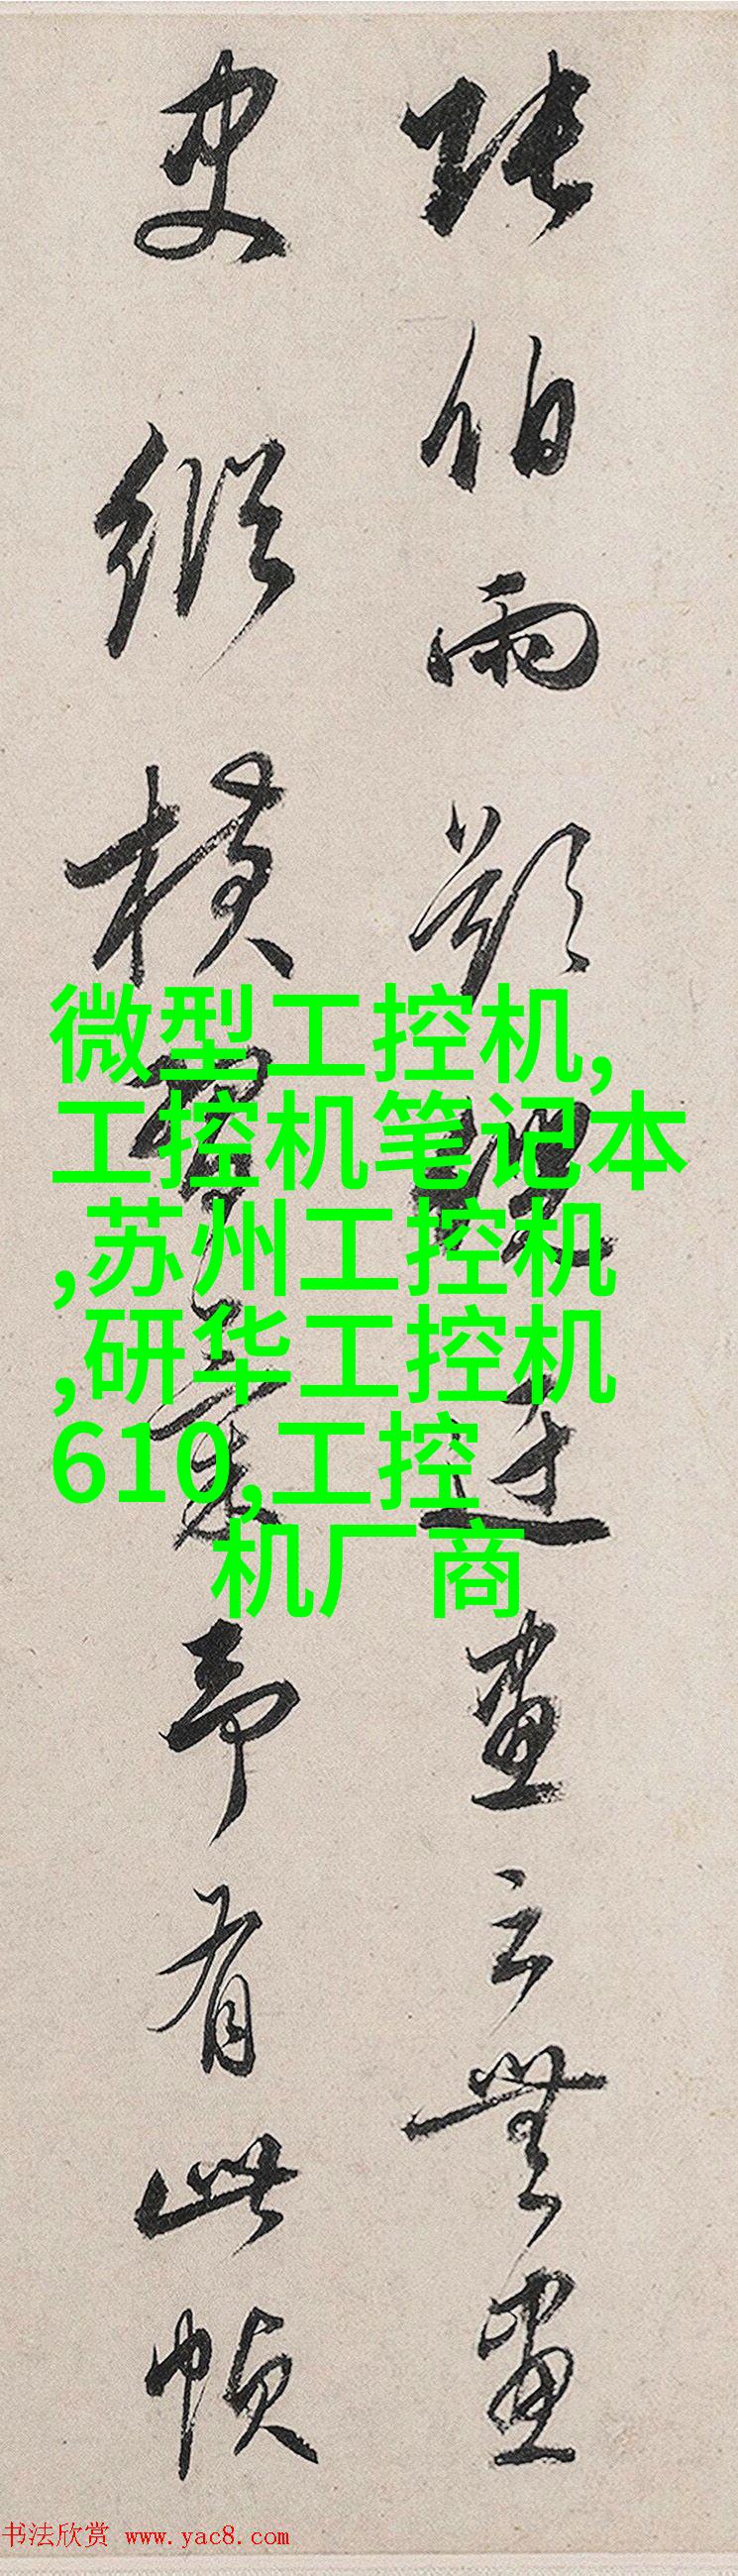 張伯雨題倪迂畫云無畫
史縱橫習氣予有此幀
微型工控机,
工控机笔记本
,苏州工控机
,研华工控机
610,工控
机厂商
书法欣赏 www.yac8.com